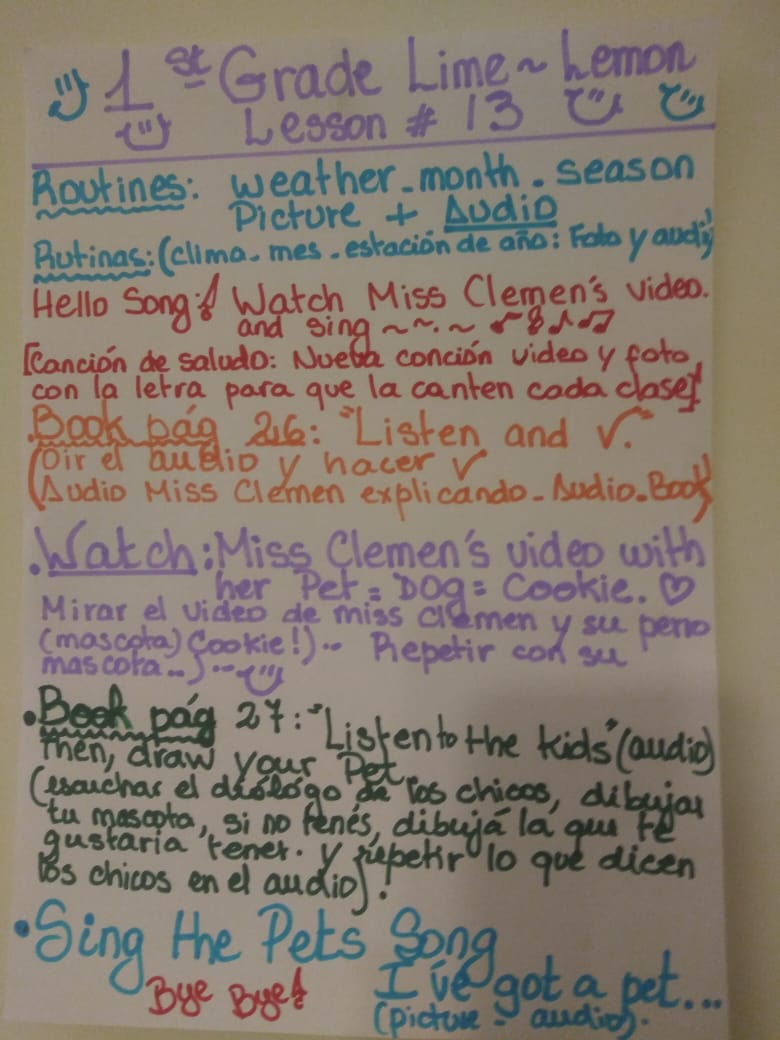 1st Grade Lime ~ Lemon
Lesson # 13
Routines: weather - month - season
Picture + Audio
Rutinas: (clima - mes - estación de año: Foto y audio)
Hello Song! Watch Miss Clemen's video.
and sing ~~.~
[Canción de saludo: Nueva conción video y foto
con la letra para que la canten cada clase]!
Book pág 26: "Listen and ✓."
(Oir el audio y hacer ✓
(Audio Miss Clemen explicando - Audio - Book)
.Watch: Miss Clemen's video with
her Pet = DOG = Cookie. ♡
Mirar el video de miss clemen y su perro
(mascota) Cookie!)... Repetir con su
mascota...)...
• Book pág 27: "Listen to the kids" (audio)
then, draw your Pet.
(escuchar el diálogo de los chicos, dibujar
tu mascota, si no tenés, dibujá la que te
gustaria tener. y repetir lo que dicen
los chicos en el audio)!
• Sing the Pets Song
Bye Bye! I've got a pet...
(picture - audio).